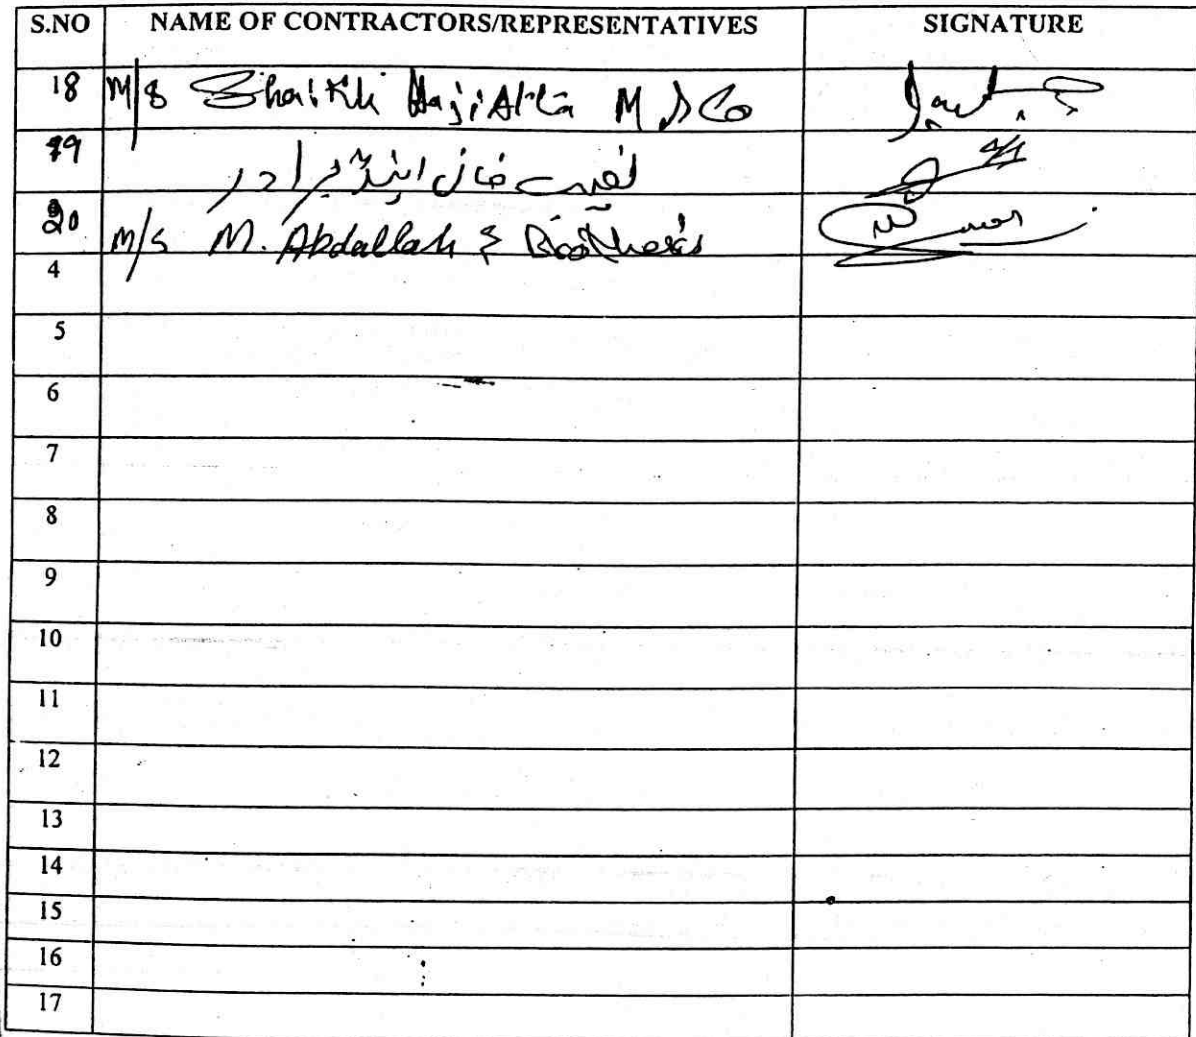 S.NO NAME OF CONTRACTORS/REPRESENTATIVES SIGNATURE
18 M/s Shaikh Haji Atta M & Co
19 نصیب خان اینڈ برادر
20 M/s M. Abdallah & Brothers
4
5
6
7
8
9
10
11
12
13
14
15
16
17